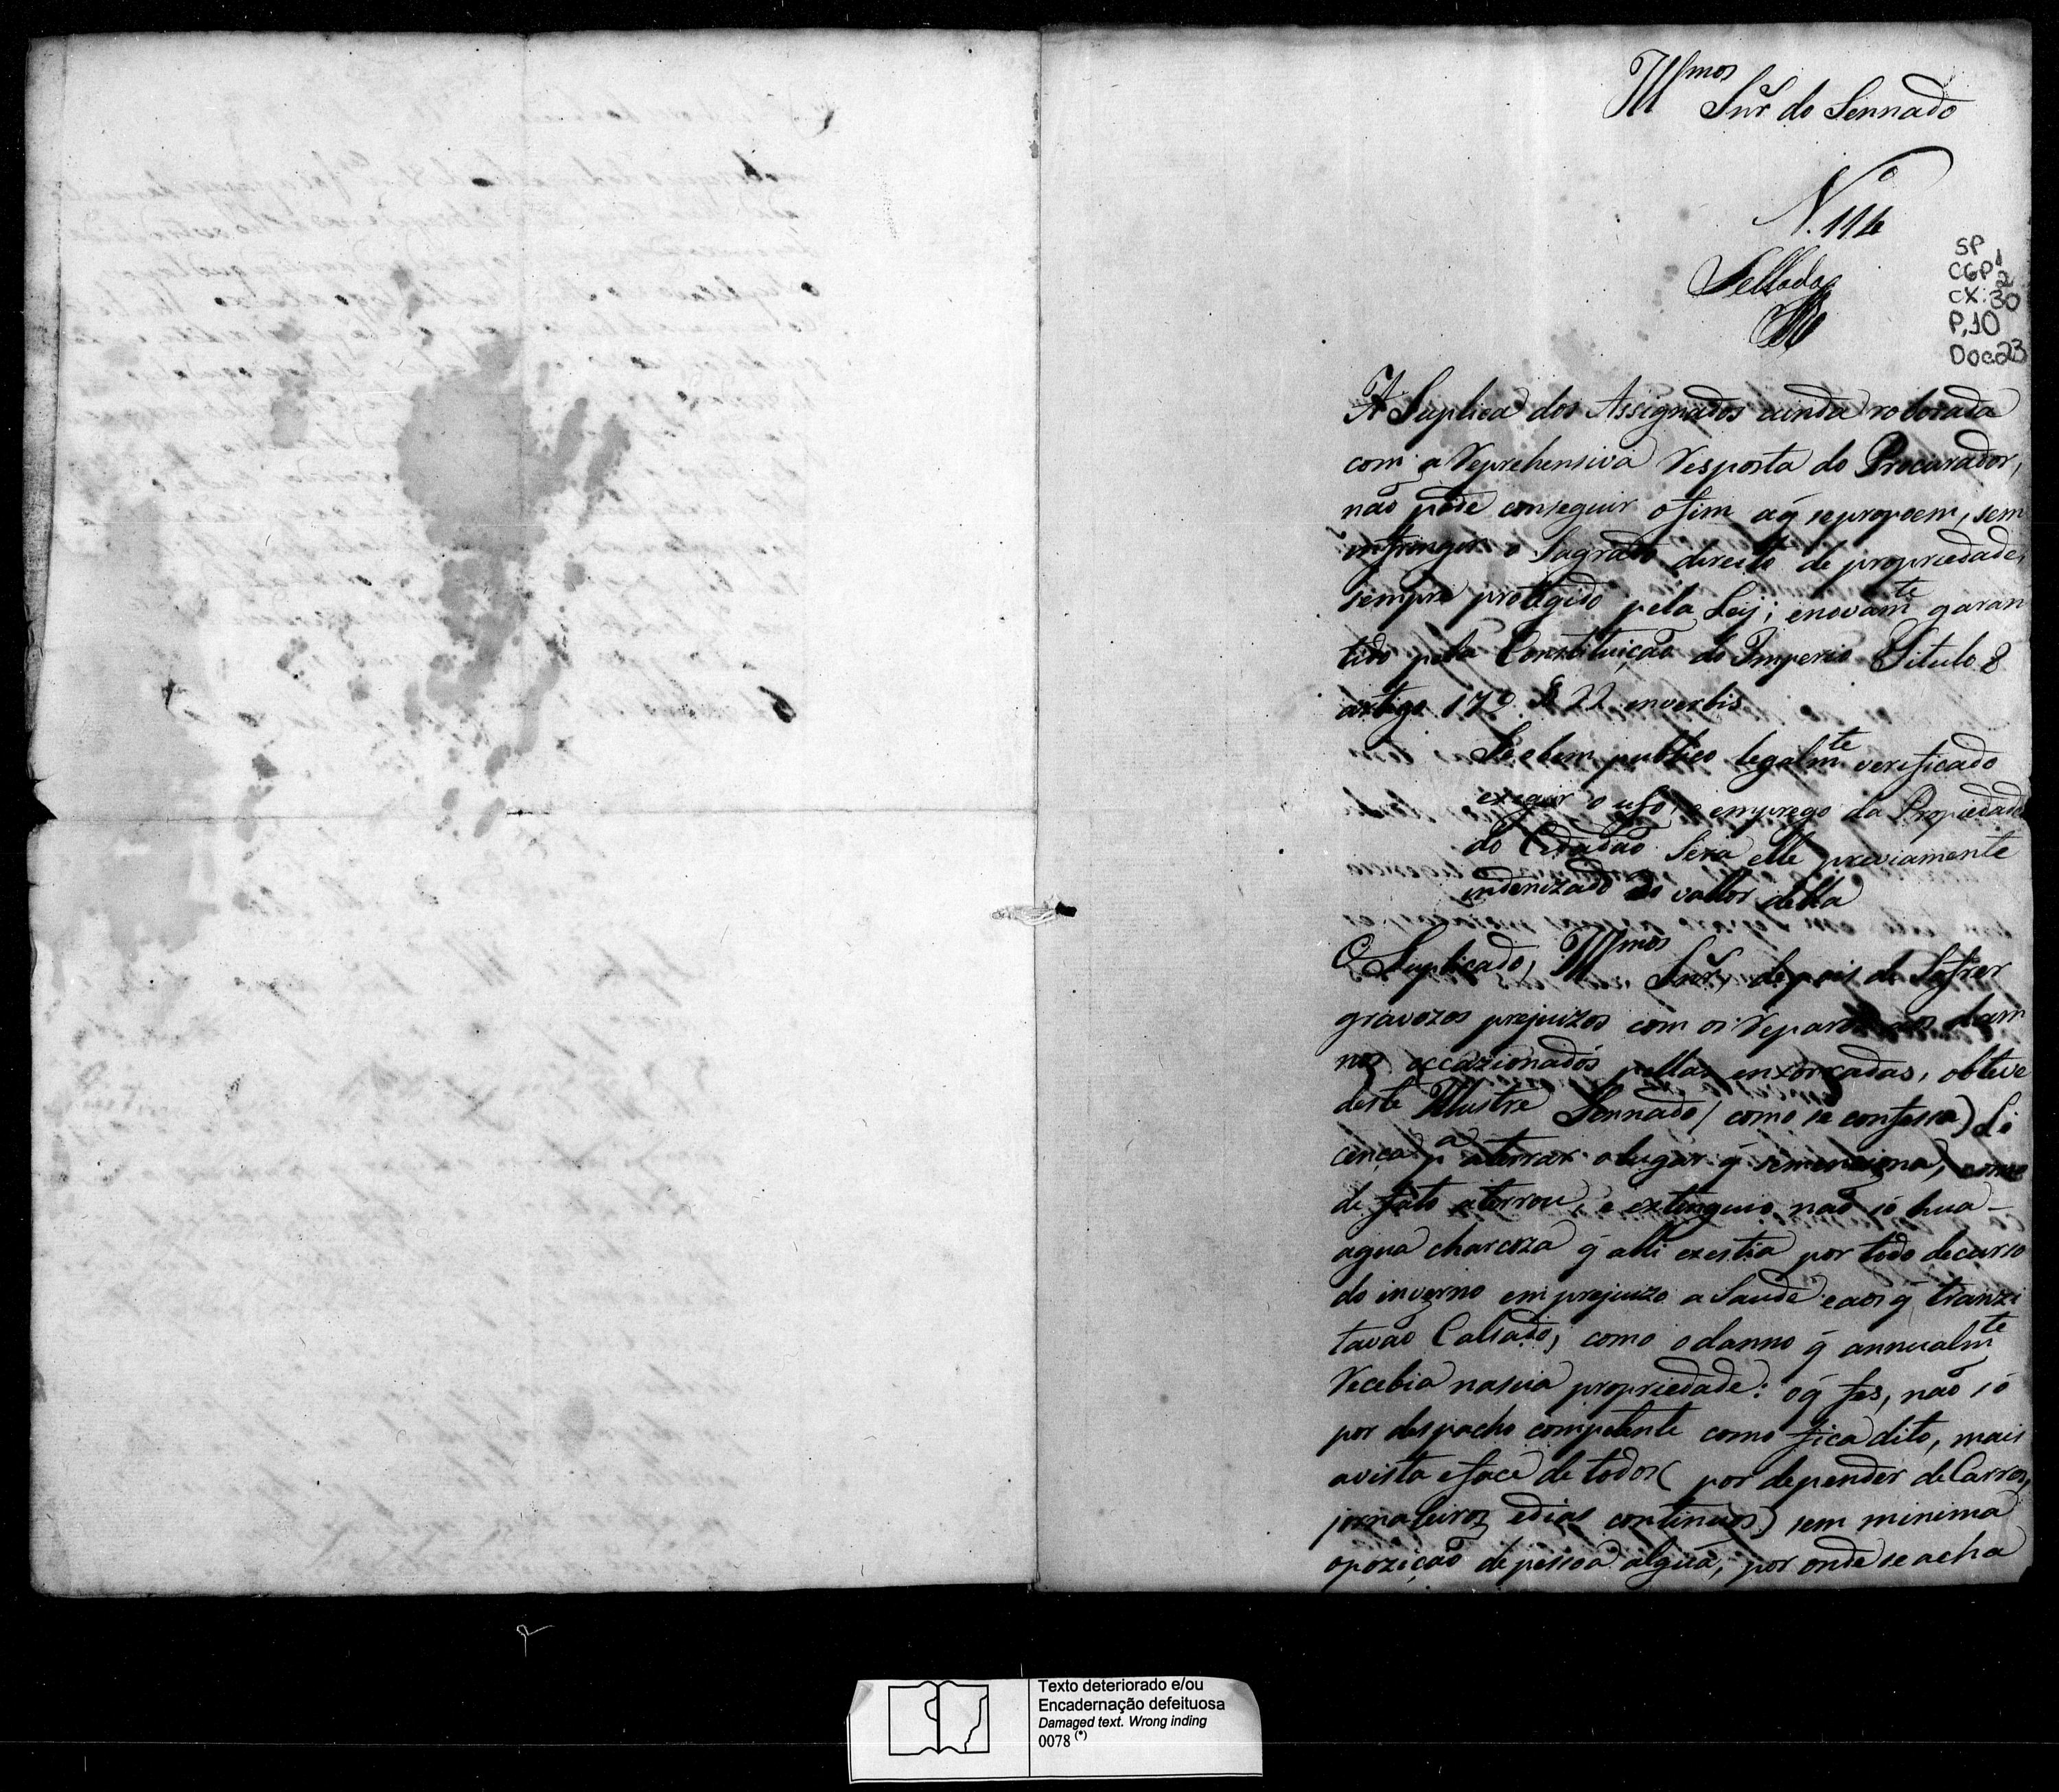 Illmos
Snr do Sennado
N. 114
Sellada
SP
CGP1
CX: 30
P.10
Doc 23
A Suplica dos Assignados ainda roborada
com a Reprehensiva Resposta do Procurador,
não póde conseguir ofim aq̃ sepropoem, sem
infringir o Sagrado direito de propriedade,
sempre protegido pela Leij; enovamte garan
tido pela Constituição do Imperio Titulo 8
artigo 179 § 22 inverbis
Se obem publico legalmte verificado
exegir o uso, e emprego da Propiedade
do Cidadão Sera elle previamente
indenizado do vallor della
O Suplicado, Illmos Snrs, depois de Sofrer
gravozos prejuizos com os Reparos dos dam
nos occazionados pellas enxorradas, obteve
deste Illustre Sennado (como se confessa) Li
cença pa aterrar olugar q̃ semenciona, como
de fato aterrou, e extinguio não só hua
agua charcoza q̃ alli exestia por todo decurso
do inverno emprejuizo a Saude eaos q̃ tranzi
tavão Calsado, como odanno q̃ annualmte
Recebia nasua propriedade: oq̃ fes, não só
por despacho competente como fica dito, mais
avista eface de todos (por depender de Carros,
jornaleiros edias continuos) sem minima
opozição depessoa algũa, por onde seacha
Texto deteriorado e/ou
Encadernação defeituosa
Damaged text. Wrong inding
0078 (*)